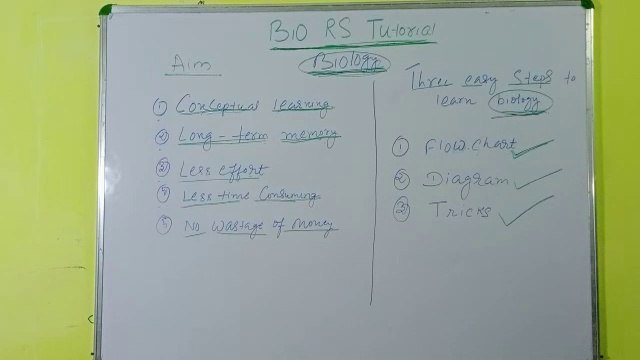 BIO RS Tutorial
Biology
Aim
① Conceptual learning
② Long-term memory
③ Less effort
④ Less time Consuming
⑤ No wastage of money
Three easy Steps to
learn biology
① Flow.chart ✓
② Diagram ✓
③ Tricks ✓